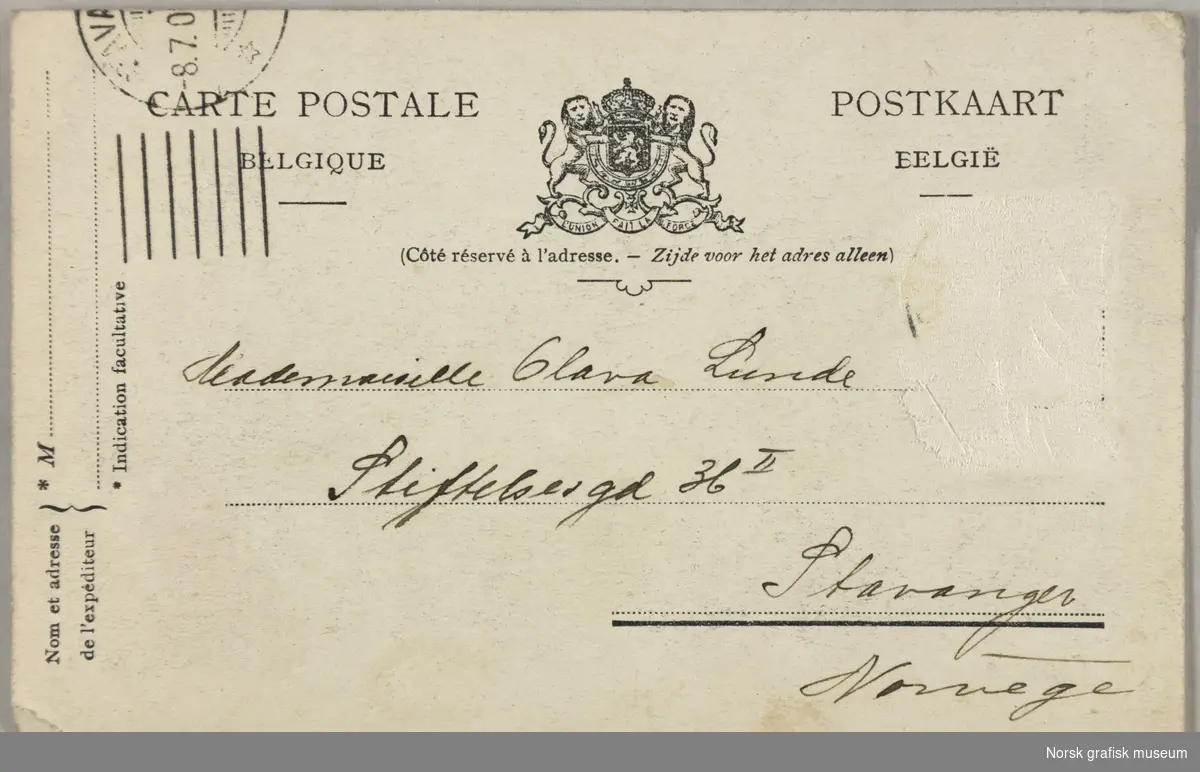 -8.7.0
CARTE POSTALE
BELGIQUE
POSTKAART
BELGIË
L'UNION FAIT LA FORCE
(Côté réservé à l'adresse. — Zijde voor het adres alleen)
Mademoiselle Olava Lunde
Stiftelsesgd 36 II
Stavanger
Norvège
Nom et adresse
de l'expéditeur
* M
* Indication facultative
Norsk grafisk museum